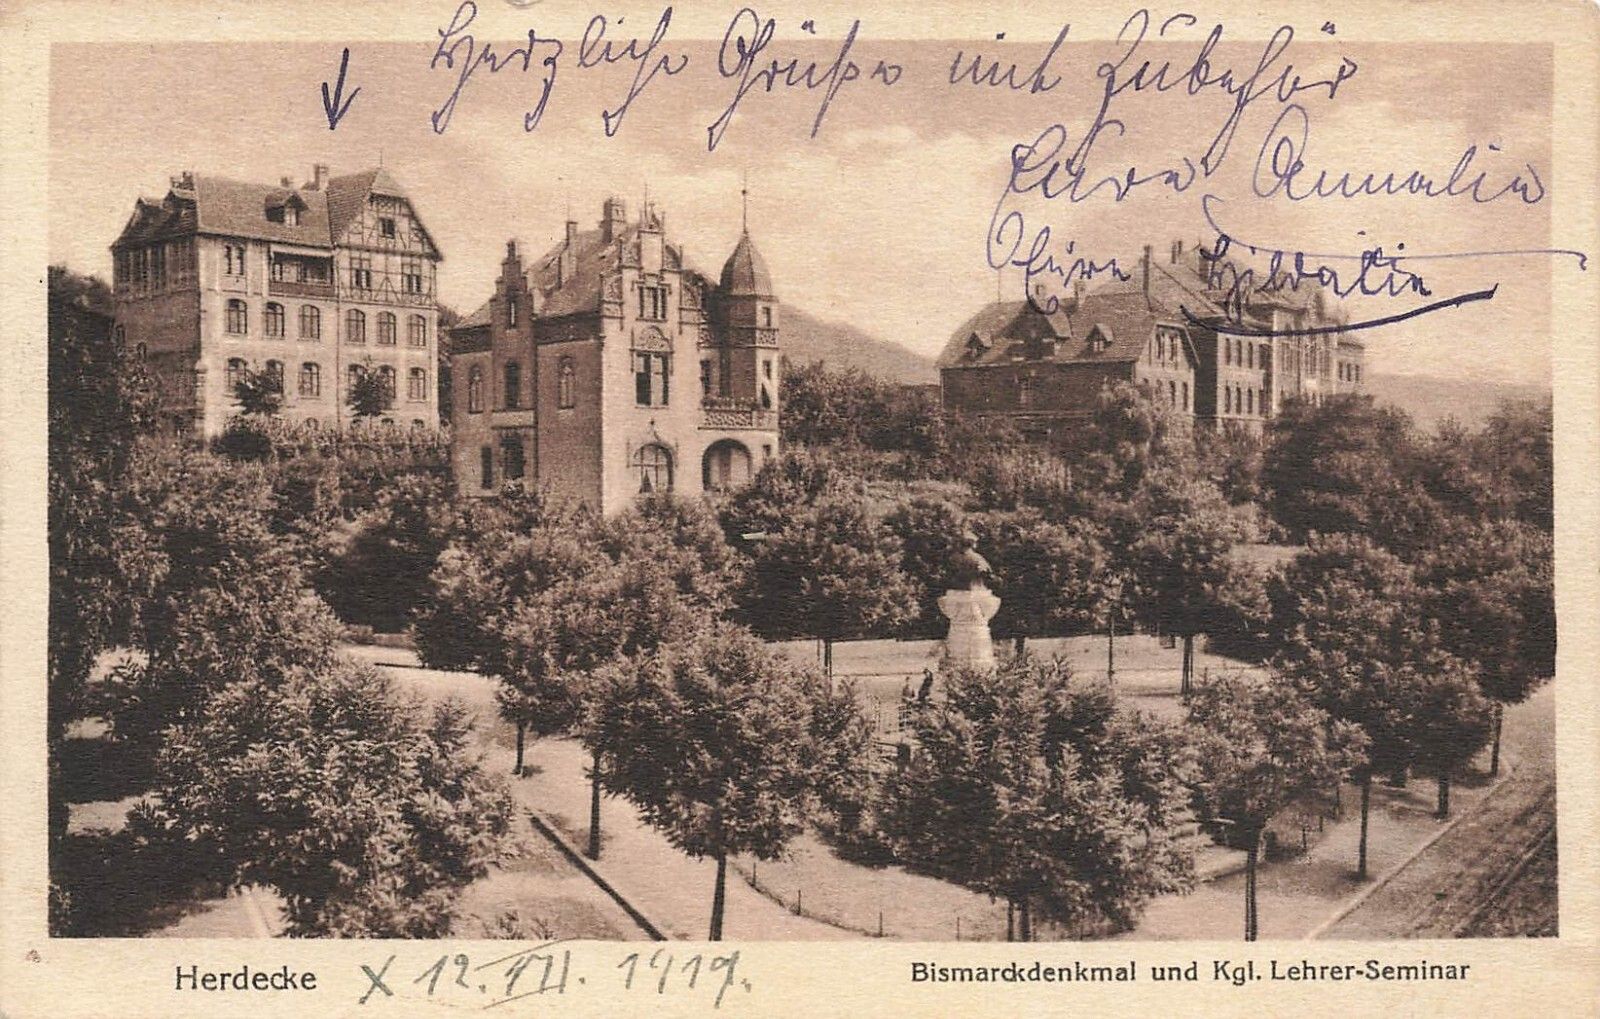 Herzliche Grüße mit Zubehör
Eure Annalie
Eure
Herdecke X 12. VII. 1919.
Bismarckdenkmal und Kgl. Lehrer-Seminar